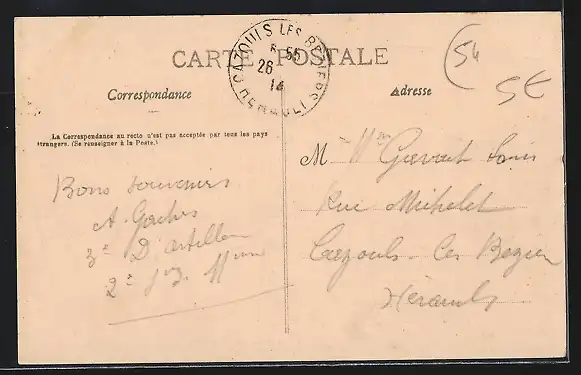 CARTE POSTALE
CAZOULS LES BEZIERS
HERAULT
26
14
54
5E
Correspondance
Adresse
La Correspondance au recto n'est pas acceptée par tous les pays
étrangers. (Se renseigner à la Poste.)
Bons souvenirs
A.
3e D' artillerie
2e
M
Rue Michelet
Cazouls-les-Beziers
Hérault